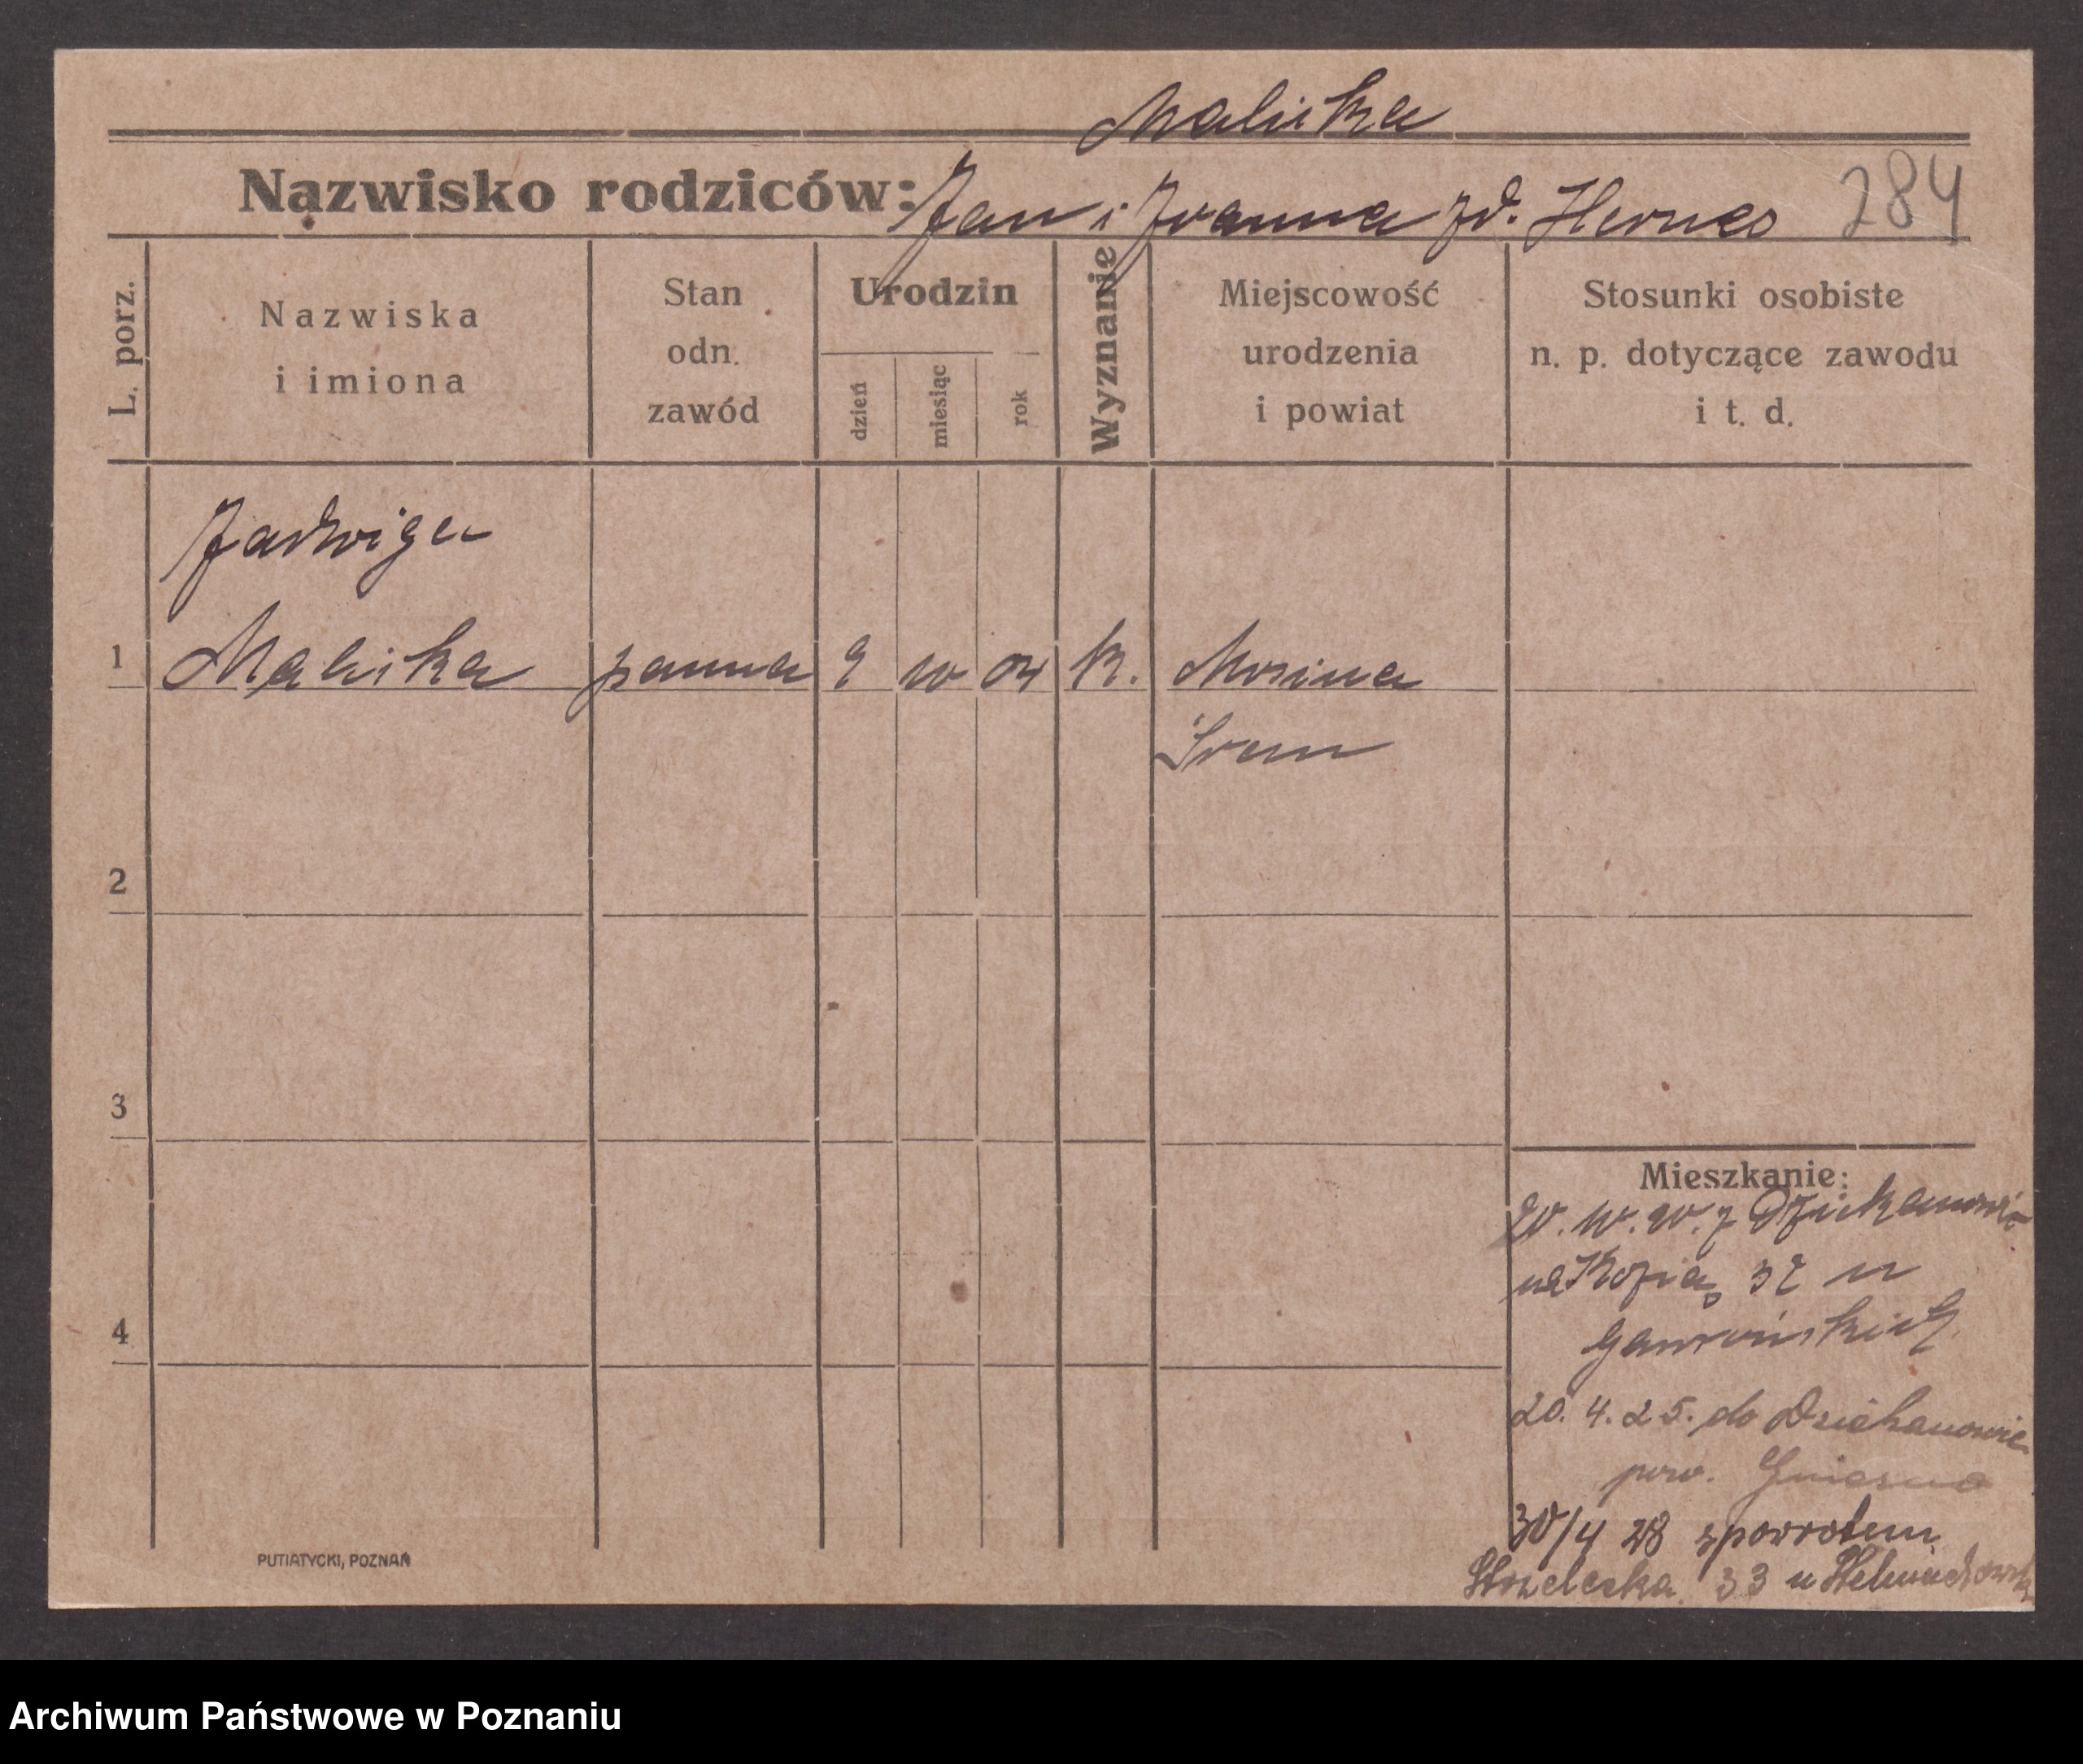 Malicka
Nazwisko rodziców: Jan i Joanna zd. Hernes 284
L. porz.
Nazwiska
i imiona
Stan
odn.
zawód
Urodzin
dzień
miesiąc
rok
Wyznanie
Miejscowość
urodzenia
i powiat
Stosunki osobiste
n. p. dotyczące zawodu
i t. d.
Jadwiga
1 Malicka panna 9 10 04 k. Mosina
Śrem
2
3
4
Mieszkanie:
z Dziekanowic
na 32 u
Gawrońskich
20. 4. 25. do Dziekanowic
pow. Gniezno
30/4 28 spowrotem
Strzelecka 33 u
PUTIATYCKI, POZNAŃ
Archiwum Państwowe w Poznaniu